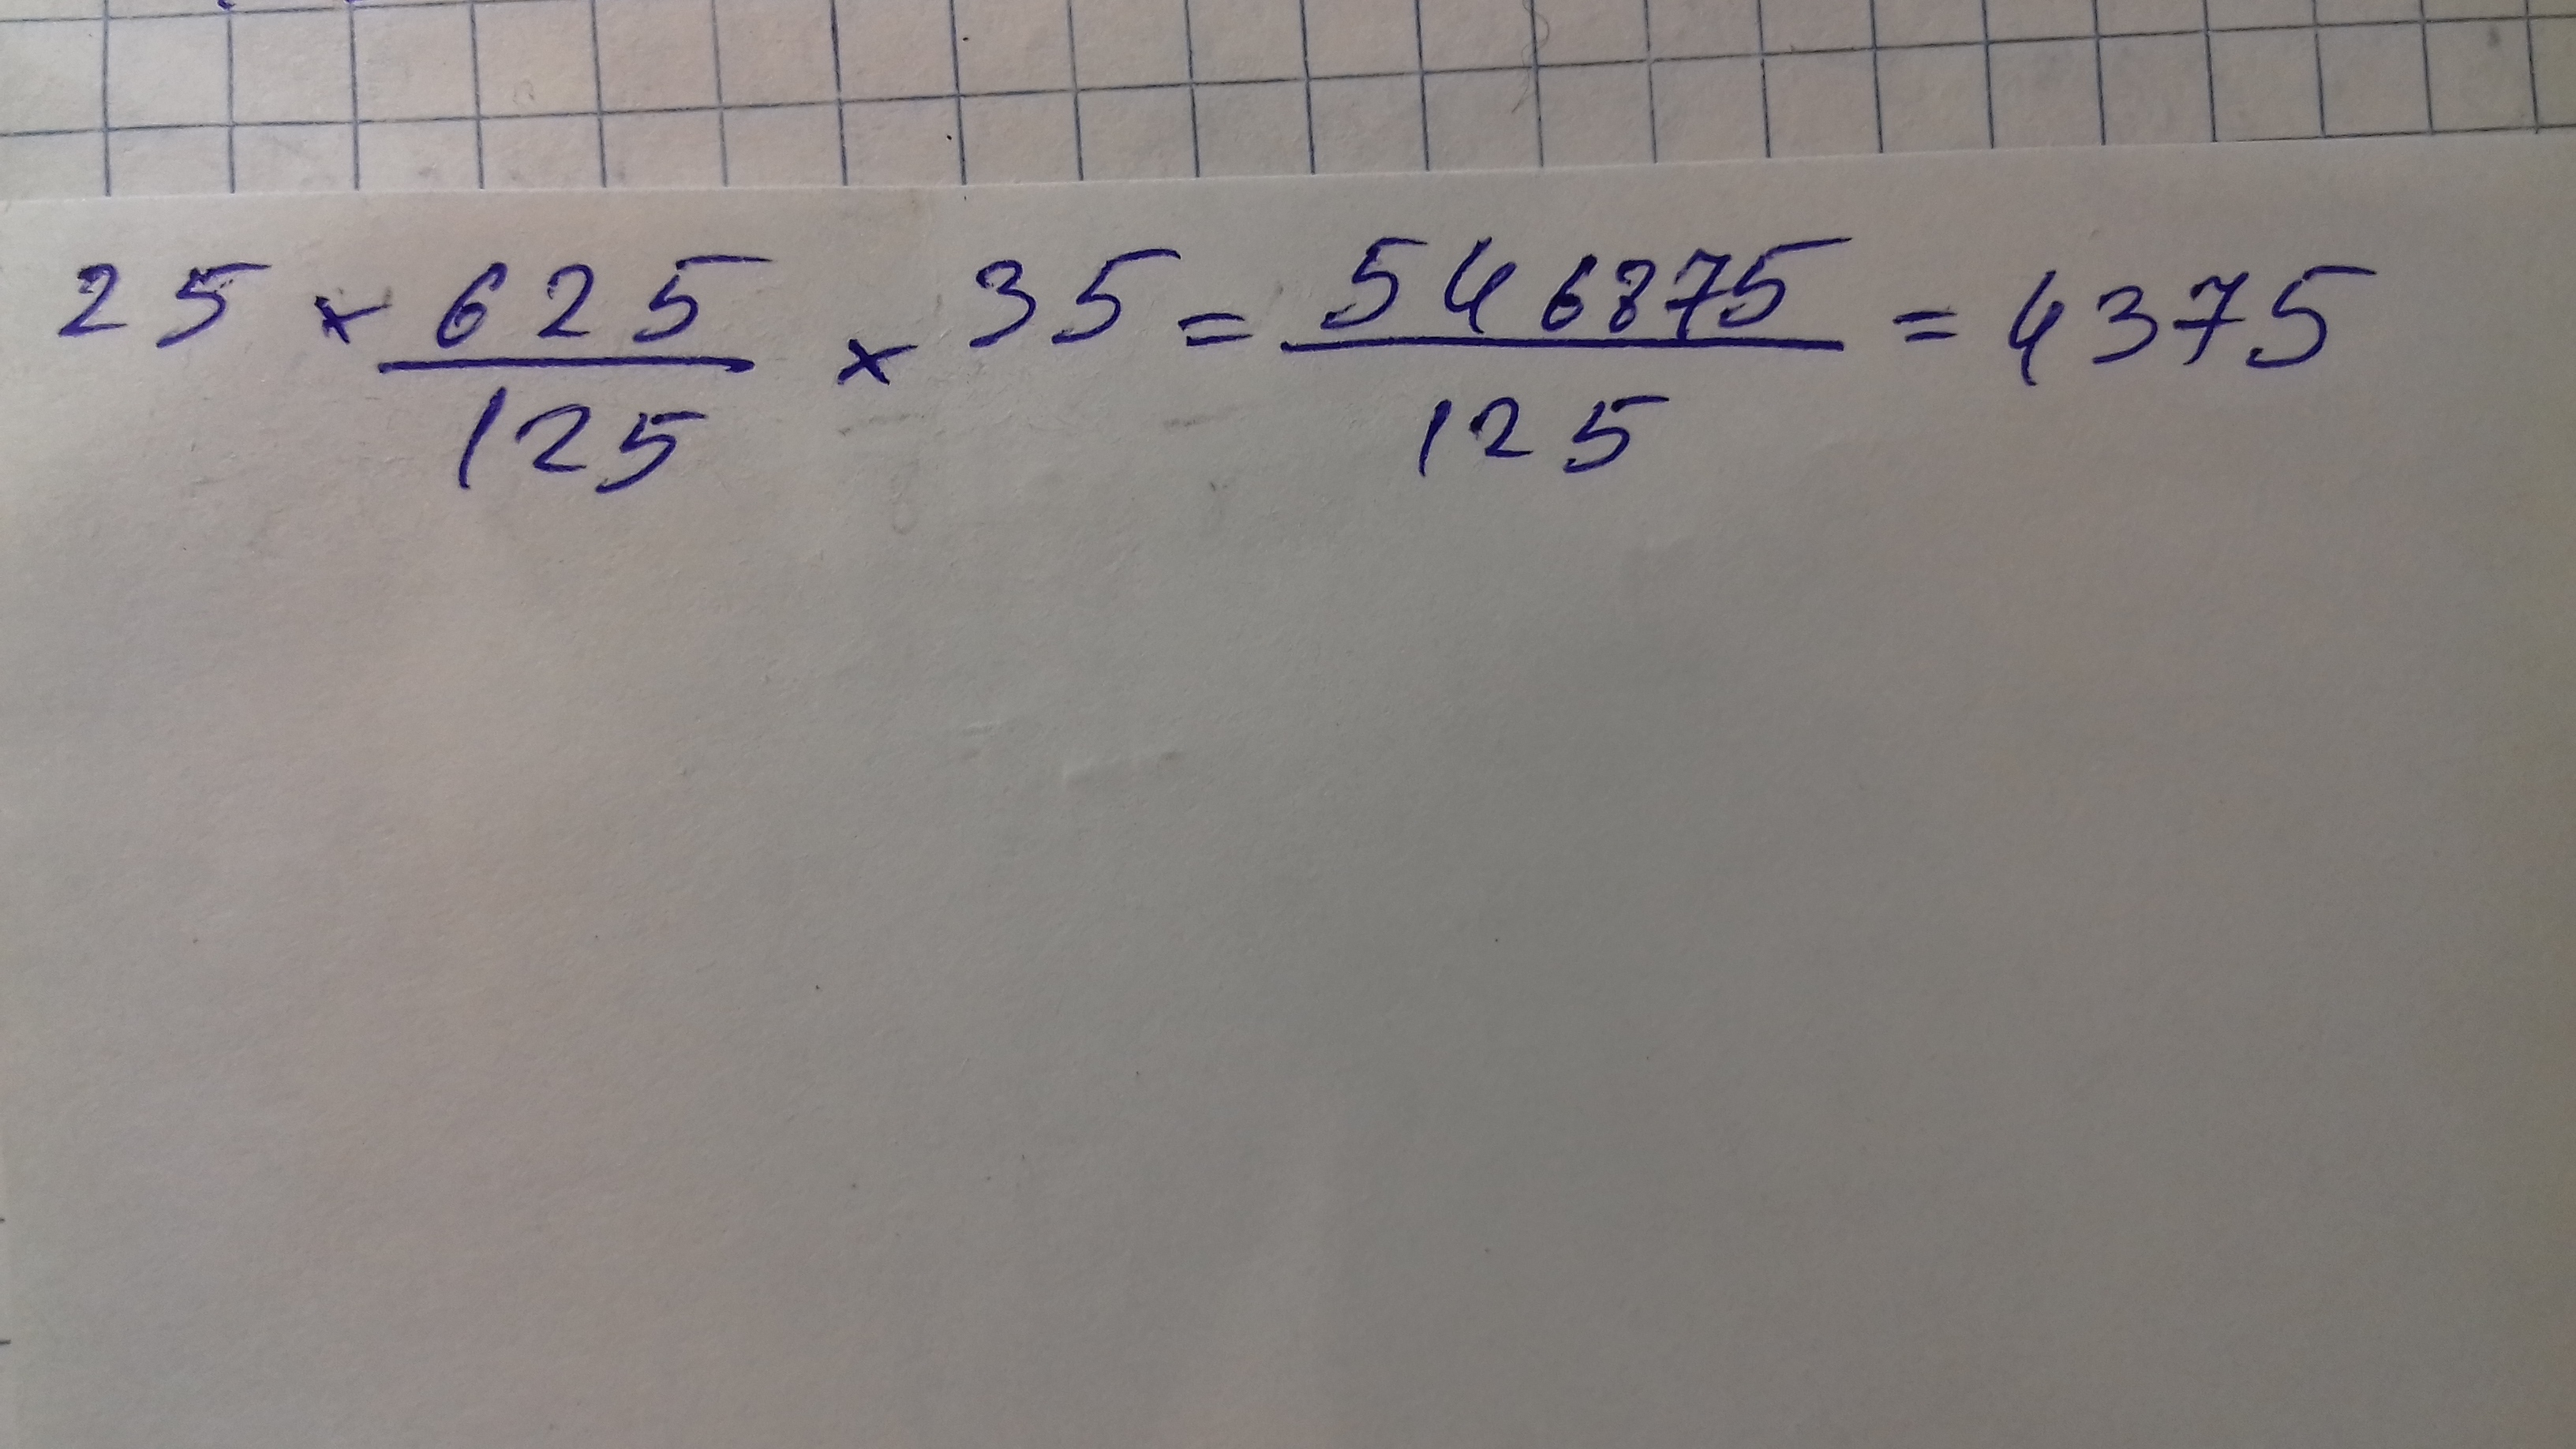 25 × 625/125 × 35 = 546875/125 = 4375